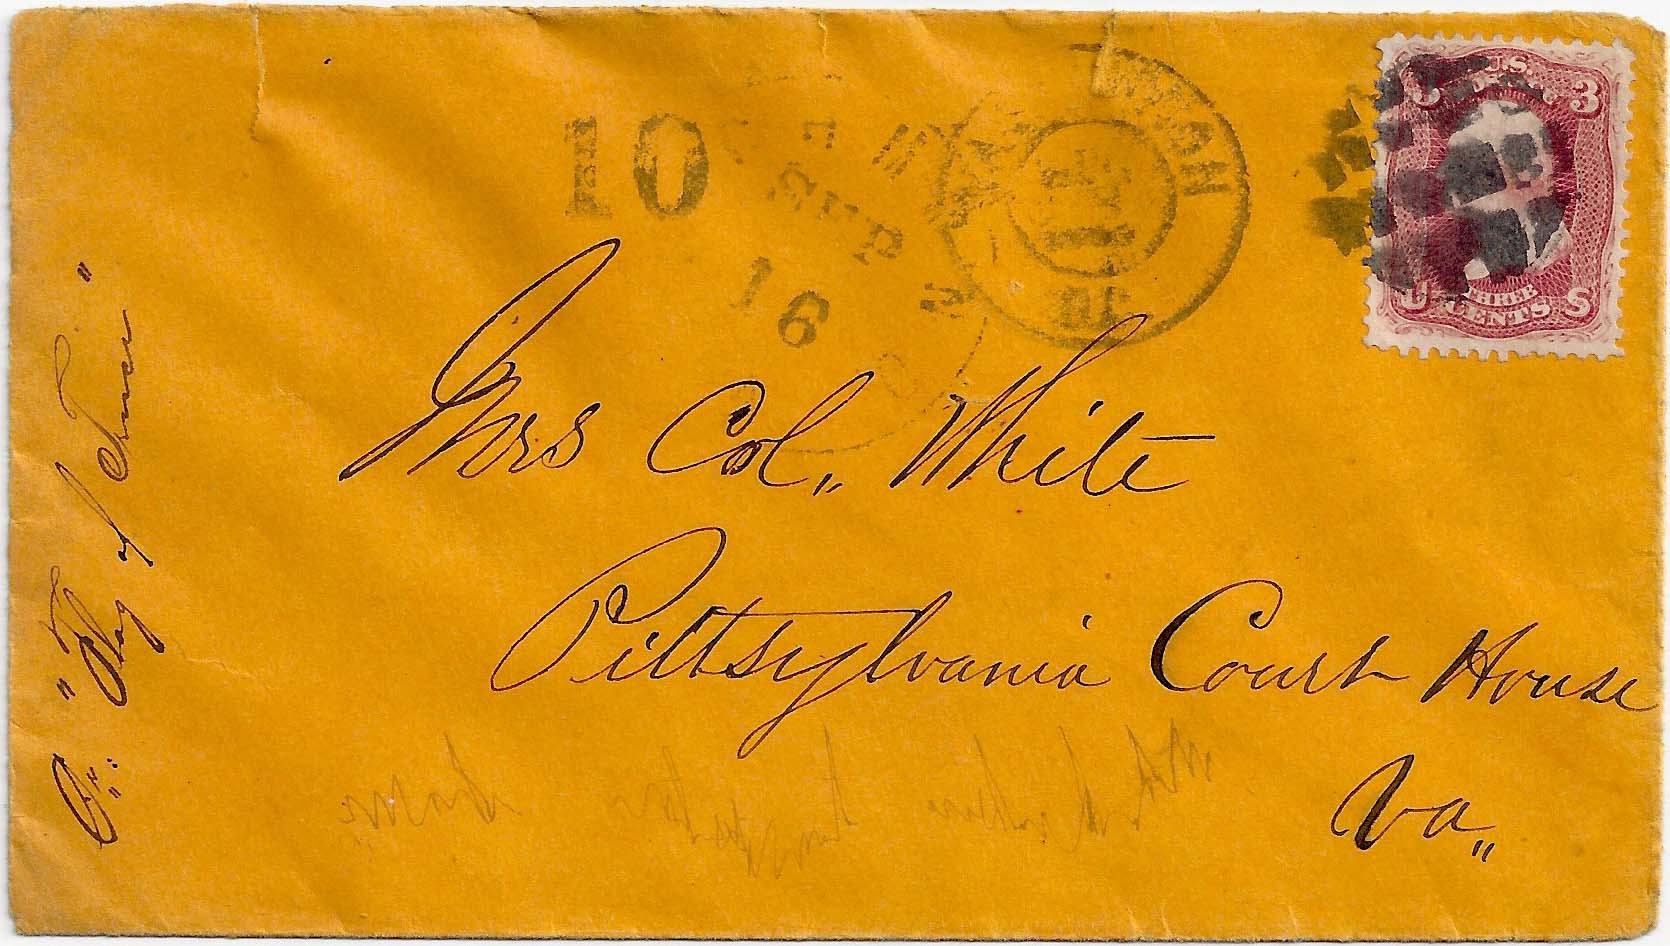 10
SEP
16
U.S.
3
THREE
CENTS
U S
Mrs Col,, White
Pittsylvania Court House
Va,,
"Flag of Truce"